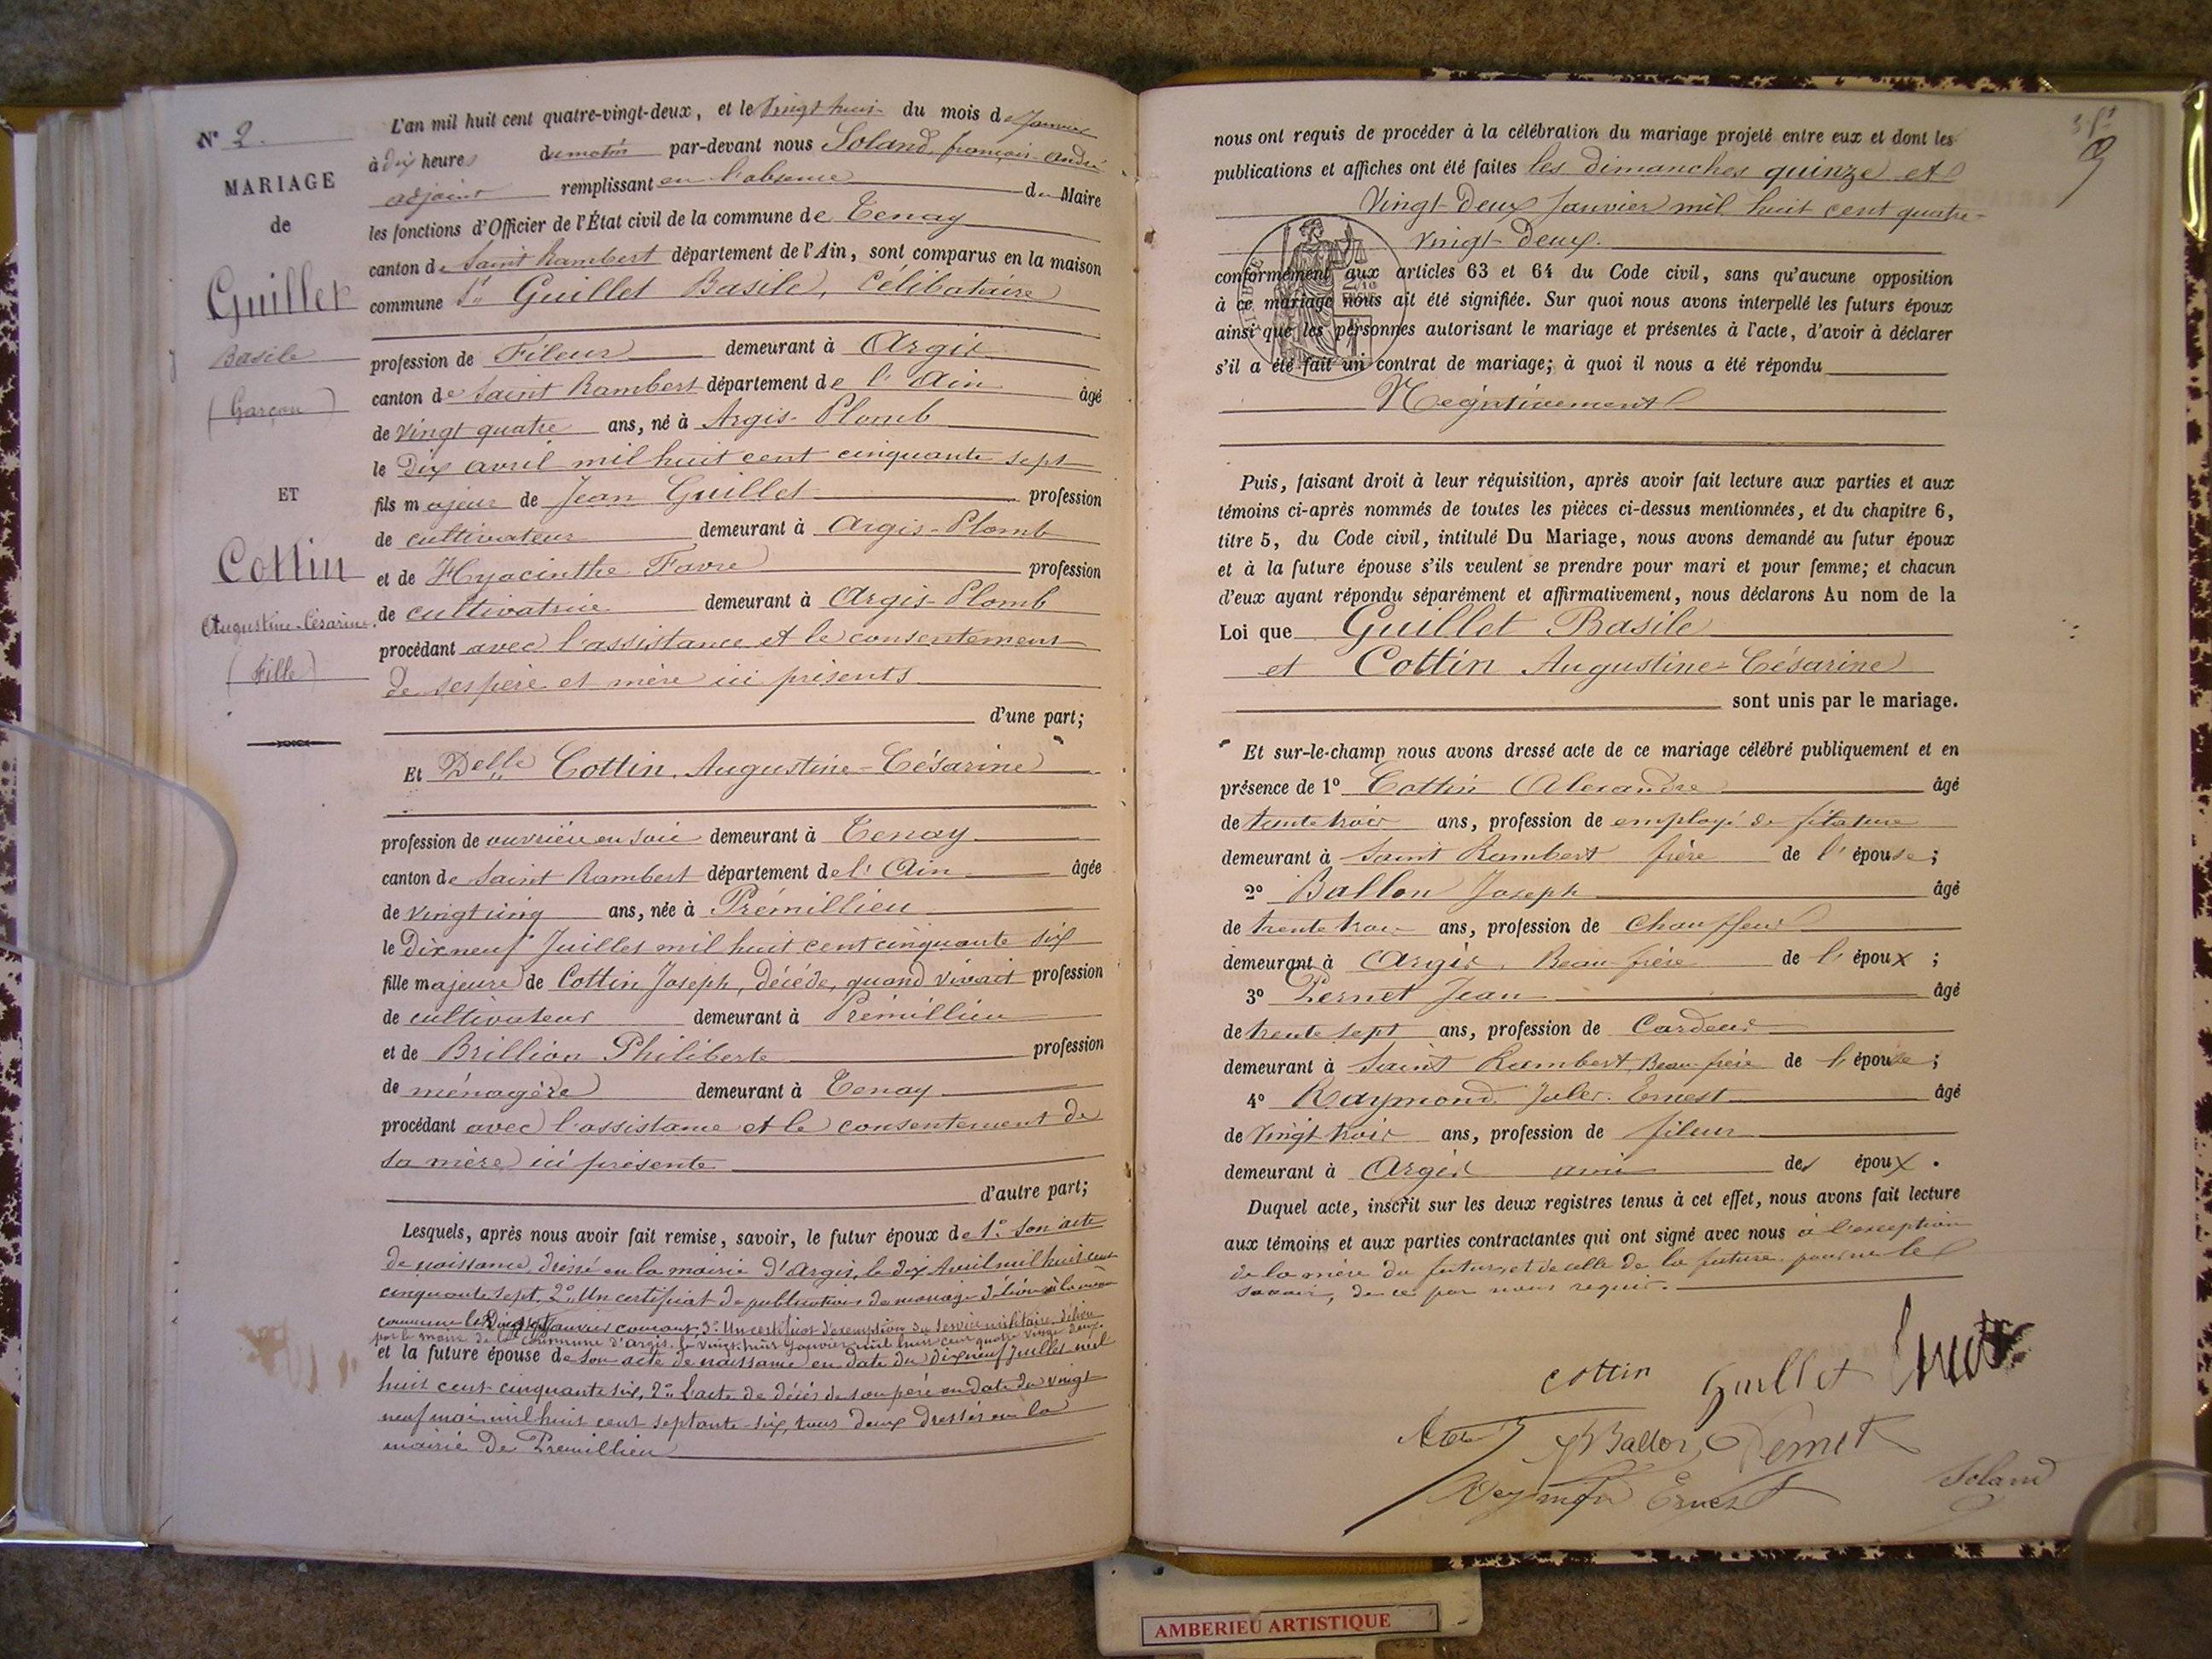 N° 2.
MARIAGE
de
Guillet
Basile
(Garçon)
ET
Cottin
Augustine-Césarine.
(Fille)
L'an mil huit cent quatre-vingt-deux, et le vingt huit du mois de Janvier
à dix heures du matin par-devant nous Soland françois-andré
adjoint remplissant en l'absence du Maire
les fonctions d'Officier de l'État civil de la commune de Tenay
canton de Saint Rambert département de l'Ain, sont comparus en la maison
commune Sr Guillet Basile, Célibataire
profession de Fileur demeurant à Argis
canton de Saint Rambert département de l'Ain âgé
de vingt quatre ans, né à Argis-Plomb
le Dix avril mil huit cent cinquante sept
fils majeur de Jean Guillet profession
de cultivateur demeurant à Argis-Plomb
et de Hyacinthe Favre profession
de cultivatrice demeurant à Argis-Plomb
procédant avec l'assistance et le consentement
de ses père et mère ici présents
d'une part;
Et Delle Cottin, Augustine-Césarine
profession de ouvrière en soie demeurant à Tenay
canton de Saint Rambert département de l'Ain âgée
de vingt cinq ans, née à Prémillieu
le Dix neuf Juillet mil huit cent cinquante six
fille majeure de Cottin Joseph, décédé, quand vivait profession
de cultivateur demeurant à Prémillieu
et de Brillion Philiberte profession
de ménagère demeurant à Tenay
procédant avec l'assistance et le consentement de
sa mère ici présente
d'autre part;
Lesquels, après nous avoir fait remise, savoir, le futur époux de 1° Son acte
de naissance, dressé en la mairie d'Argis, le dix Avril mil huit cent
cinquante sept, 2° Un certificat de publications de mariage délivré
commune le vingt janvier courant; 3° Un certificat d'exemption du service militaire, délivré
par le maire de la commune d'Argis, le vingt huit Janvier mil huit cent quatre vingt deux.
et la future épouse de son acte de naissance en date du dix neuf juillet mil
huit cent cinquante six, 2° l'acte de décès de son père en date du vingt
neuf mai mil huit cent septante-six, tous deux dressés en la
mairie de Prémillieu
nous ont requis de procéder à la célébration du mariage projeté entre eux et dont les
publications et affiches ont été faites les dimanches quinze et
Vingt-Deux Janvier mil huit cent quatre-
vingt-deux.
conformément aux articles 63 et 64 du Code civil, sans qu'aucune opposition
à ce mariage nous ait été signifiée. Sur quoi nous avons interpellé les futurs époux
ainsi que les personnes autorisant le mariage et présentes à l'acte, d'avoir à déclarer
s'il a été fait un contrat de mariage; à quoi il nous a été répondu
Négativement
Puis, faisant droit à leur réquisition, après avoir fait lecture aux parties et aux
témoins ci-après nommés de toutes les pièces ci-dessus mentionnées, et du chapitre 6,
titre 5, du Code civil, intitulé Du Mariage, nous avons demandé au futur époux
et à la future épouse s'ils veulent se prendre pour mari et pour femme; et chacun
d'eux ayant répondu séparément et affirmativement, nous déclarons Au nom de la
Loi que Guillet Basile
et Cottin Augustine-Césarine
sont unis par le mariage.
Et sur-le-champ nous avons dressé acte de ce mariage célébré publiquement et en
présence de 1° Cottin Alexandre âgé
de trente trois ans, profession de employé de filature
demeurant à Saint Rambert frère de l'épouse;
2° Ballon Joseph âgé
de trente trois ans, profession de Chauffeur
demeurant à Argis, Beau-frère de l'époux;
3° Pernet Jean âgé
de trente sept ans, profession de Cardeur
demeurant à Saint Rambert, Beau-frère de l'épouse;
4° Raymond Jules-Ernest âgé
de vingt trois ans, profession de fileur
demeurant à Argis ami des époux.
Duquel acte, inscrit sur les deux registres tenus à cet effet, nous avons fait lecture
aux témoins et aux parties contractantes qui ont signé avec nous à l'exception
de la mère du futur, et de celle de la future pour ne le
savoir, de ce par nous requis.
cottin Guillet
Ballon Pernet
Reymon Ernest Soland
AMBERIEU ARTISTIQUE